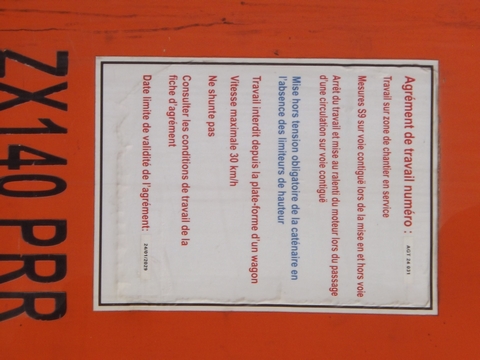 Agrément de travail numéro : AGT 24 031
Travail sur zone de chantier en service
Mesures S9 sur voie contiguë lors de la mise en et hors voie
Arrêt du travail et mise au ralenti du moteur lors du passage
d'une circulation sur voie contiguë
Mise hors tension obligatoire de la caténaire en
l'absence des limiteurs de hauteur
Travail interdit depuis la plate-forme d'un wagon
Vitesse maximale 30 km/h
Ne shunte pas
Consulter les conditions de travail de la
fiche d'agrément
Date limite de validité de l'agrément: 24/01/2029
ZX140 PRR